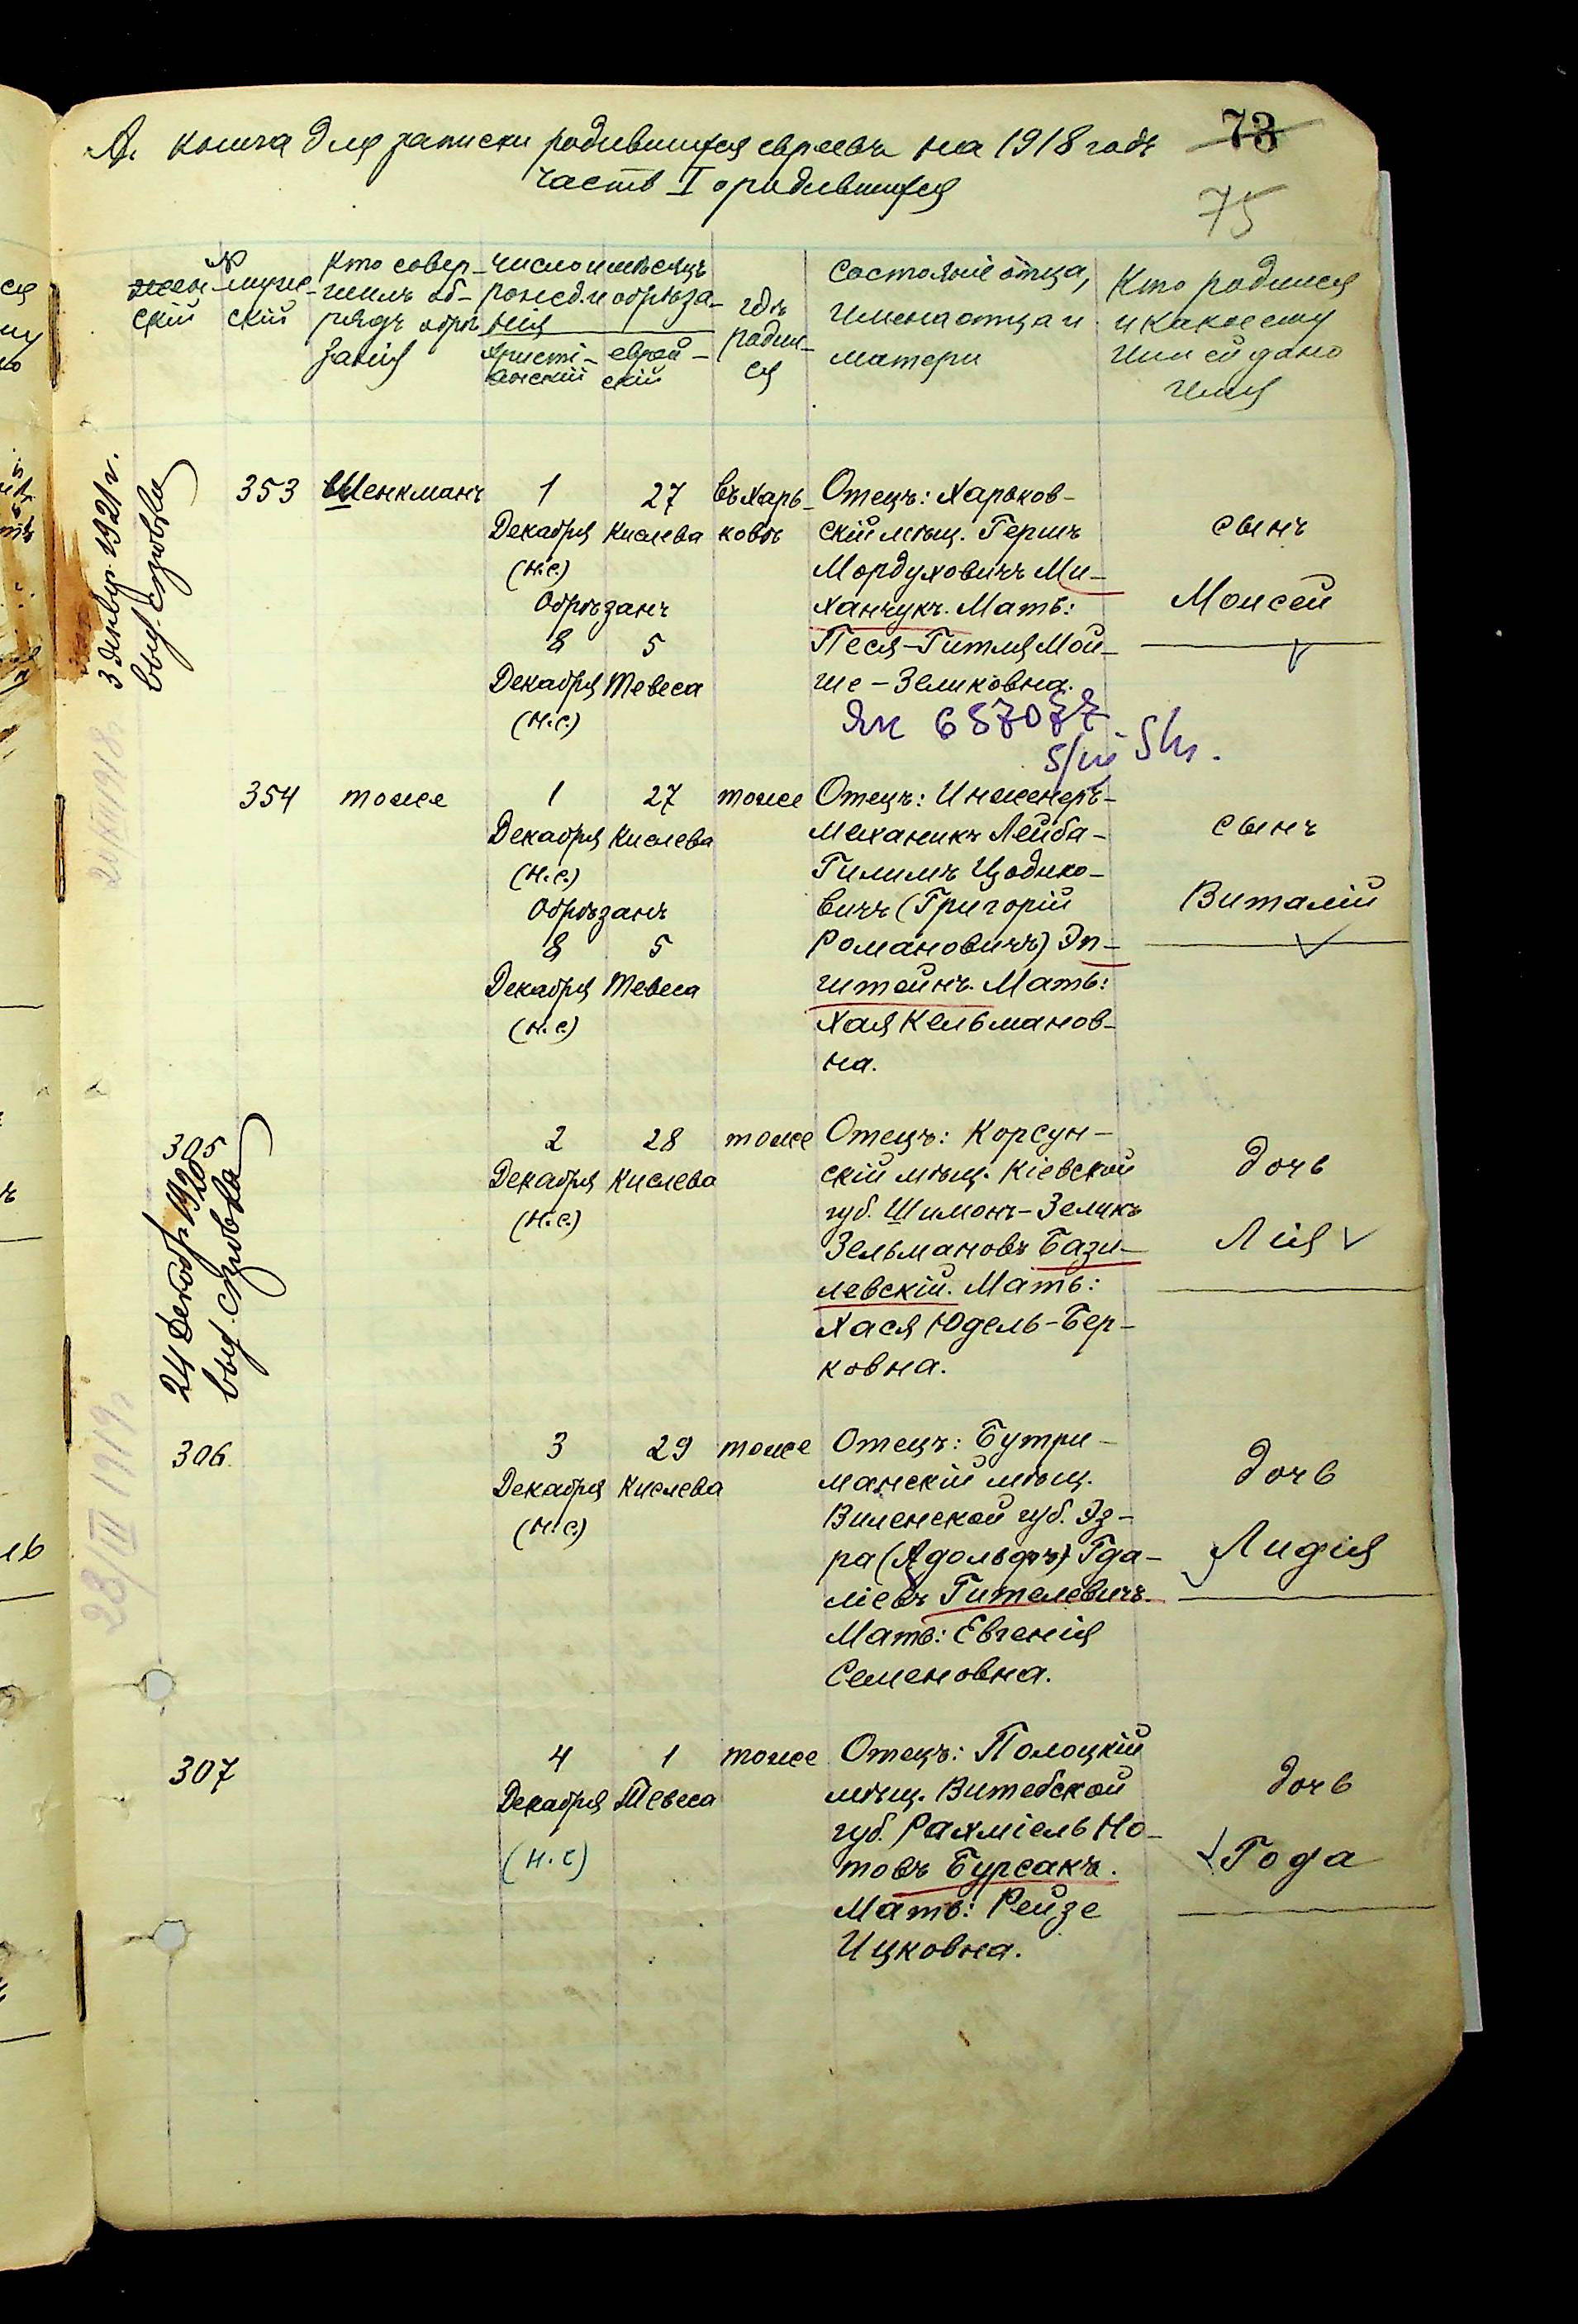 А. Книга для записки родившихся евреевъ на 1918 годъ
Часть I о родившихся
73
75
№
женскій
мужескій
Кто совер-
шилъ об-
рядъ обрѣ-
занія
Число и мѣсяцъ
рожед. и обрѣза-
нія
христі-
анскій
еврей-
скій
гдѣ
родил-
ся
Состояніе отца,
имена отца и
матери
Кто родился
и какое ему
или ей дано
имя
3 декабр. 1921 г.
353
Шенкманъ
1
Декабря
(н.с.)
27
Кислева
Обрѣзанъ
8
Декабря
(н.с.)
5
Тевеса
въ Харь-
ковѣ
Отецъ: Харьков-
скій мѣщ. Гершъ
Мордуховичъ Ми-
ханчукъ. Мать:
Песя-Гитля Мой-
ше-Зеликовна.
сынъ
Моисей
354
тоже
1
Декабря
(н.с.)
27
Кислева
Обрѣзанъ
8
Декабря
(н.с)
5
Тевеса
тоже
Отецъ: Инженеръ-
Механикъ Лейба-
Гилимъ Цодико-
вичъ (Григорій
Романовичъ) Эп-
штейнъ. Мать:
Хая Кельманов-
на.
сынъ
Виталій
305
24 Декабр. 1920
2
Декабря
(н.с.)
28
Кислева
тоже
Отецъ: Корсун-
скій мѣщ. Кіевской
губ. Шимонъ-Зеликъ
Зельмановъ Бази-
левскій. Мать:
Хася Юдель-Бер-
ковна.
дочь
Лія
23/III 1919 г.
306.
3
Декабря
(н.с.)
29
Кислева
тоже
Отецъ: Бутри-
манскій мѣщ.
Виленской губ. Эз-
ра (Адольфъ) Гда-
ліевъ Гителевичъ.
Мать: Евгенія
Семеновна.
дочь
Лидія
307
4
Декабря
(н.с)
1
Тевеса
тоже
Отецъ: Полоцкій
мѣщ. Витебской
губ. Рахміель Но-
товъ Бурсакъ.
Мать: Рейзе
Ицковна.
дочь
Года